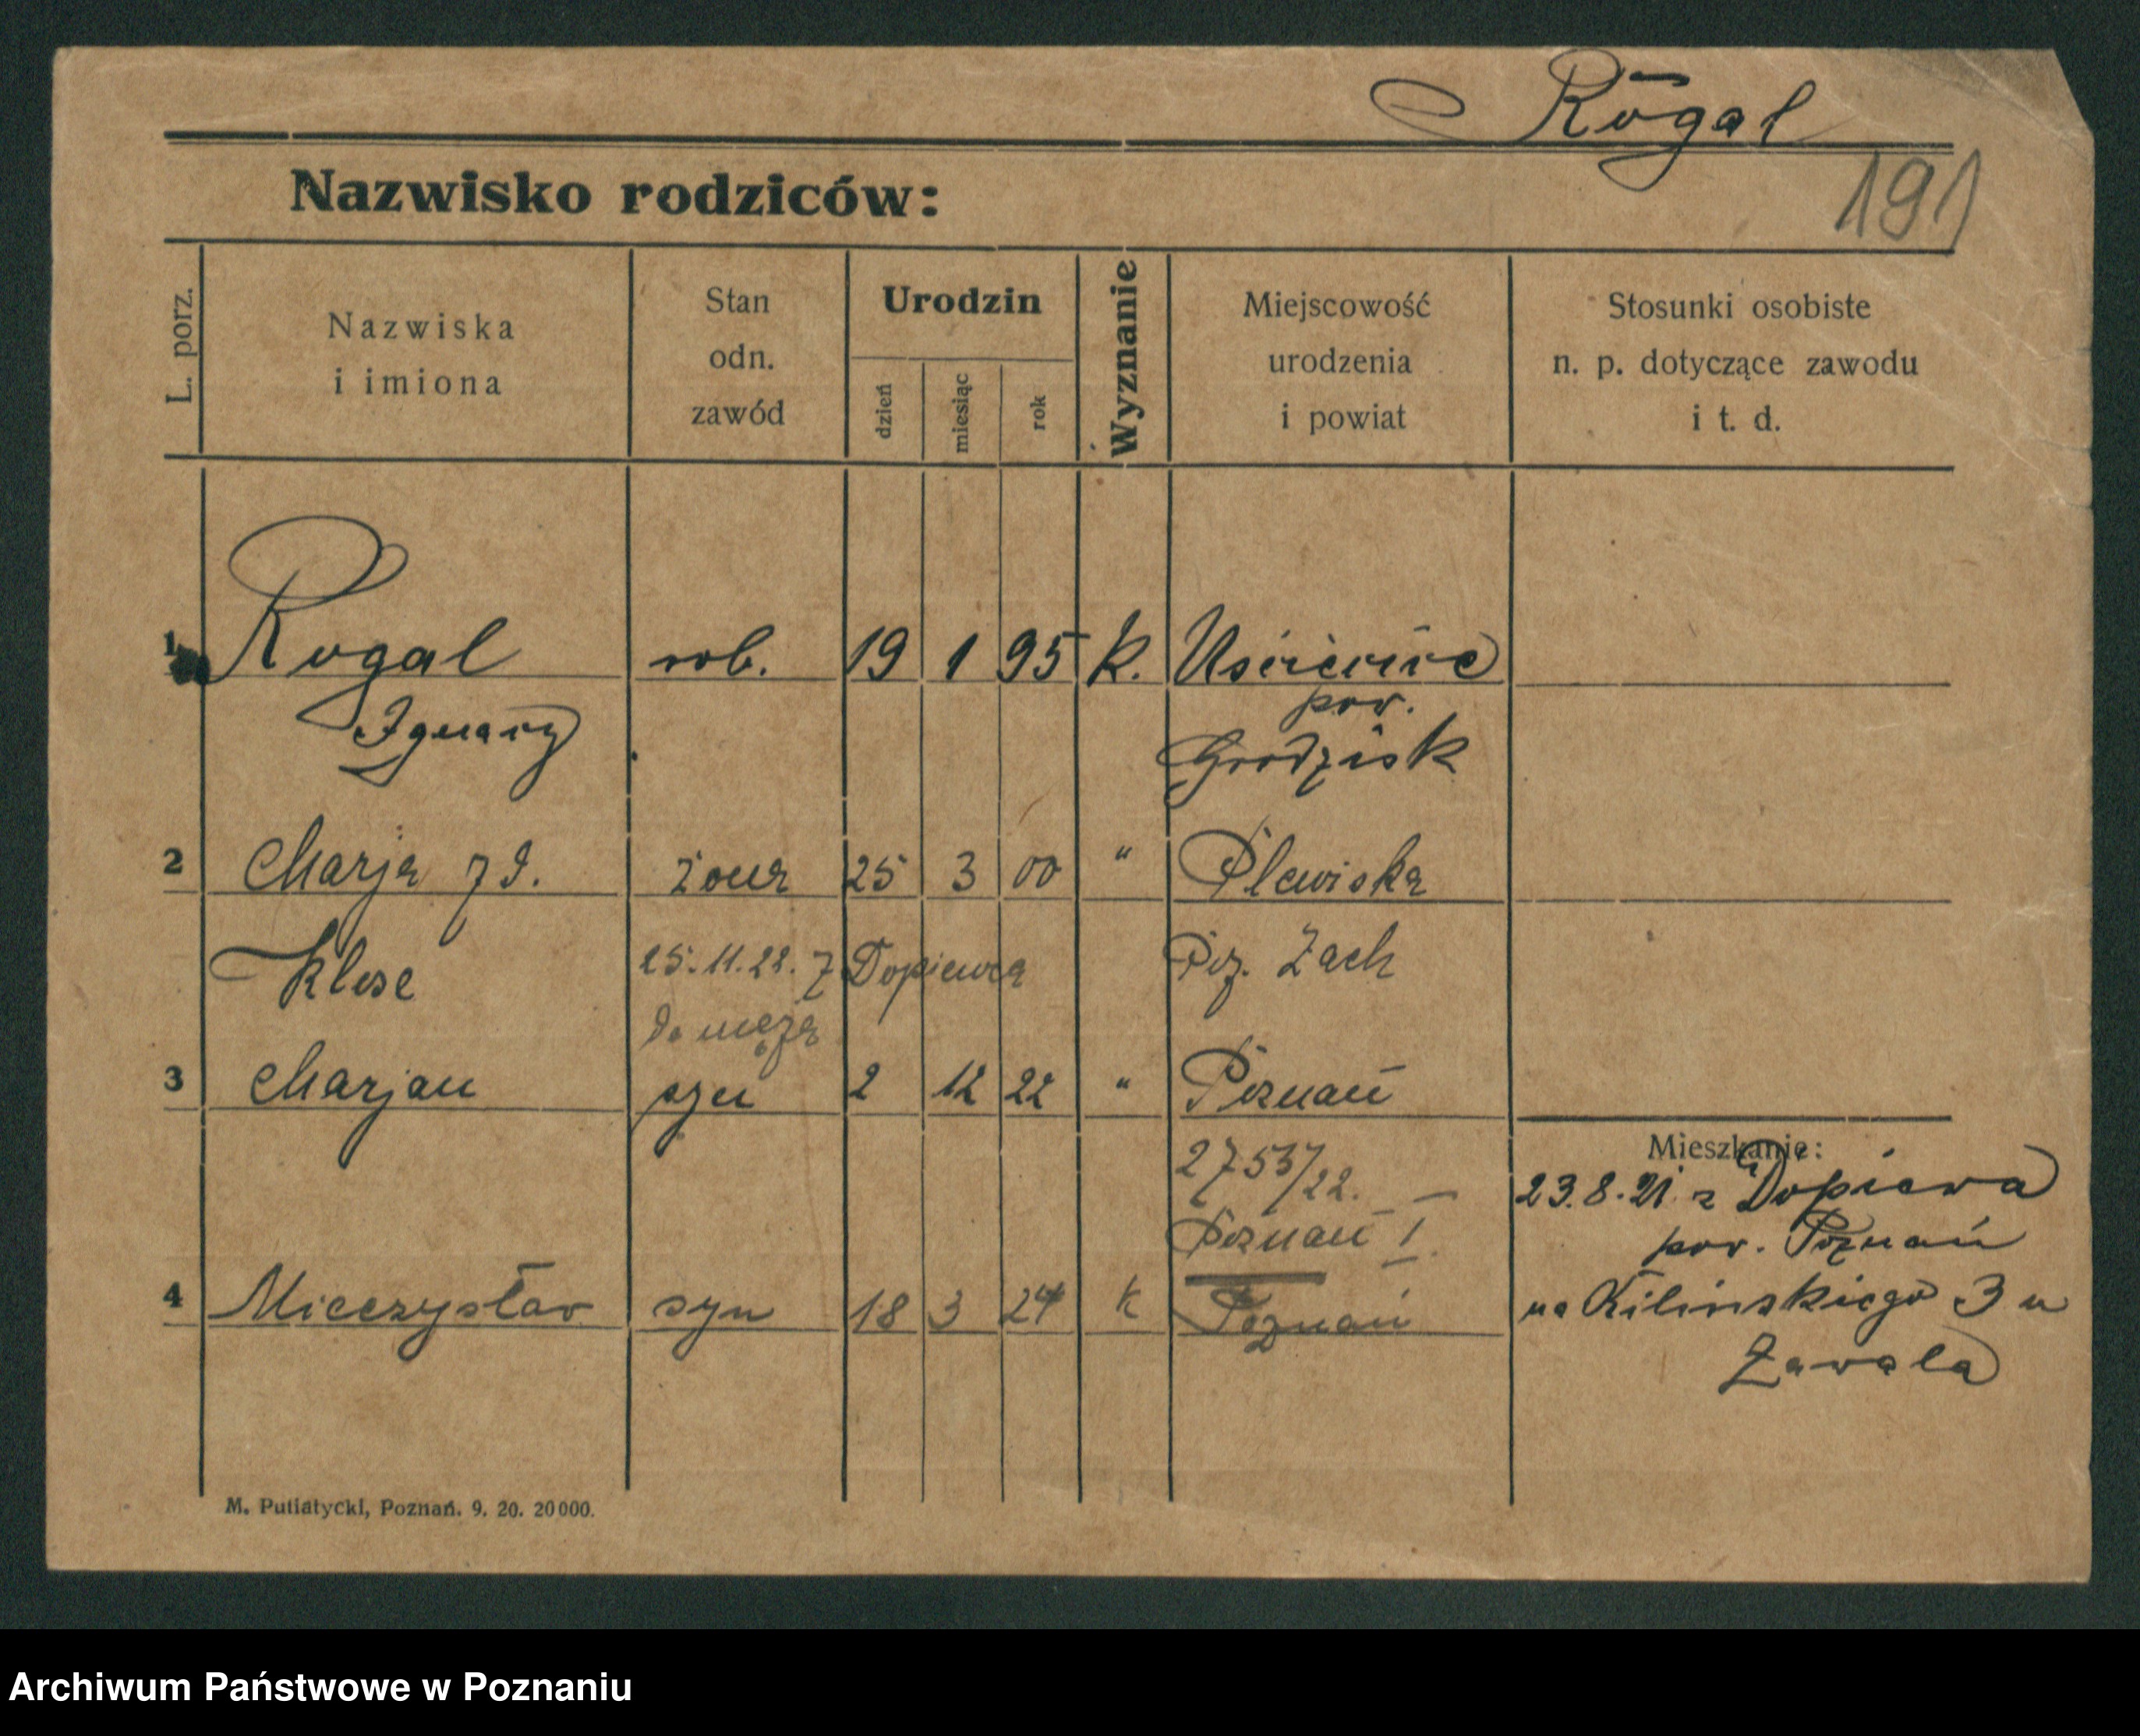 Rogal
191
Nazwisko rodziców:
L. porz.
Nazwiska
i imiona
Stan
odn.
zawód
Urodzin
dzień
miesiąc
rok
Wyznanie
Miejscowość
urodzenia
i powiat
Stosunki osobiste
n. p. dotyczące zawodu
i t. d.
1 Rogal rob. 19 1 95 k. Uścięcice
Ignacy pow.
Grodzisk
2 Marja z d. żona 25 3 00 " Plewiska
Klose 25.11.22. z Dopiewca Poz. Zach
do męża
3 Marjan syn 2 12 22 " Poznań
2753/22.
Poznań I.
4 Mieczysław syn 18 3 24 k Poznań
Mieszkanie:
23.8.21 z Dopiewa
pow. Poznań
na Kilinskiego 3 u
Zawala
M. Putiatycki, Poznań. 9. 20. 20000.
Archiwum Państwowe w Poznaniu